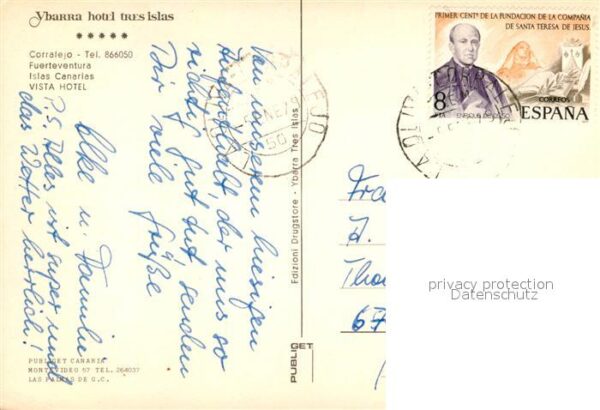 Ybarra hotel tres islas
★★★★★
Corralejo - Tel. 866050
Fuerteventura
Islas Canarias
VISTA HOTEL
Von unserem hiesigen
Aufenthalt, der uns so
richtig gut tut, senden
Dir viele Grüße
Elke u. Familie
P.S. Alles ist super und
das Wetter herrlich!
PUBLIGET CANARIA
MONTEVIDEO 57 TEL. 264037
LAS PALMAS DE G.C.
Edizioni Drugstore - Ybarra Tres Islas
PUBLIGET
PRIMER CENTº DE LA FUNDACION DE LA COMPAÑIA
DE SANTA TERESA DE JESUS.
8
PTA
ENRIQUE DE OSSO
CORREOS
ESPAÑA
Fra
A.
Tho
67
privacy protection
Datenschutz